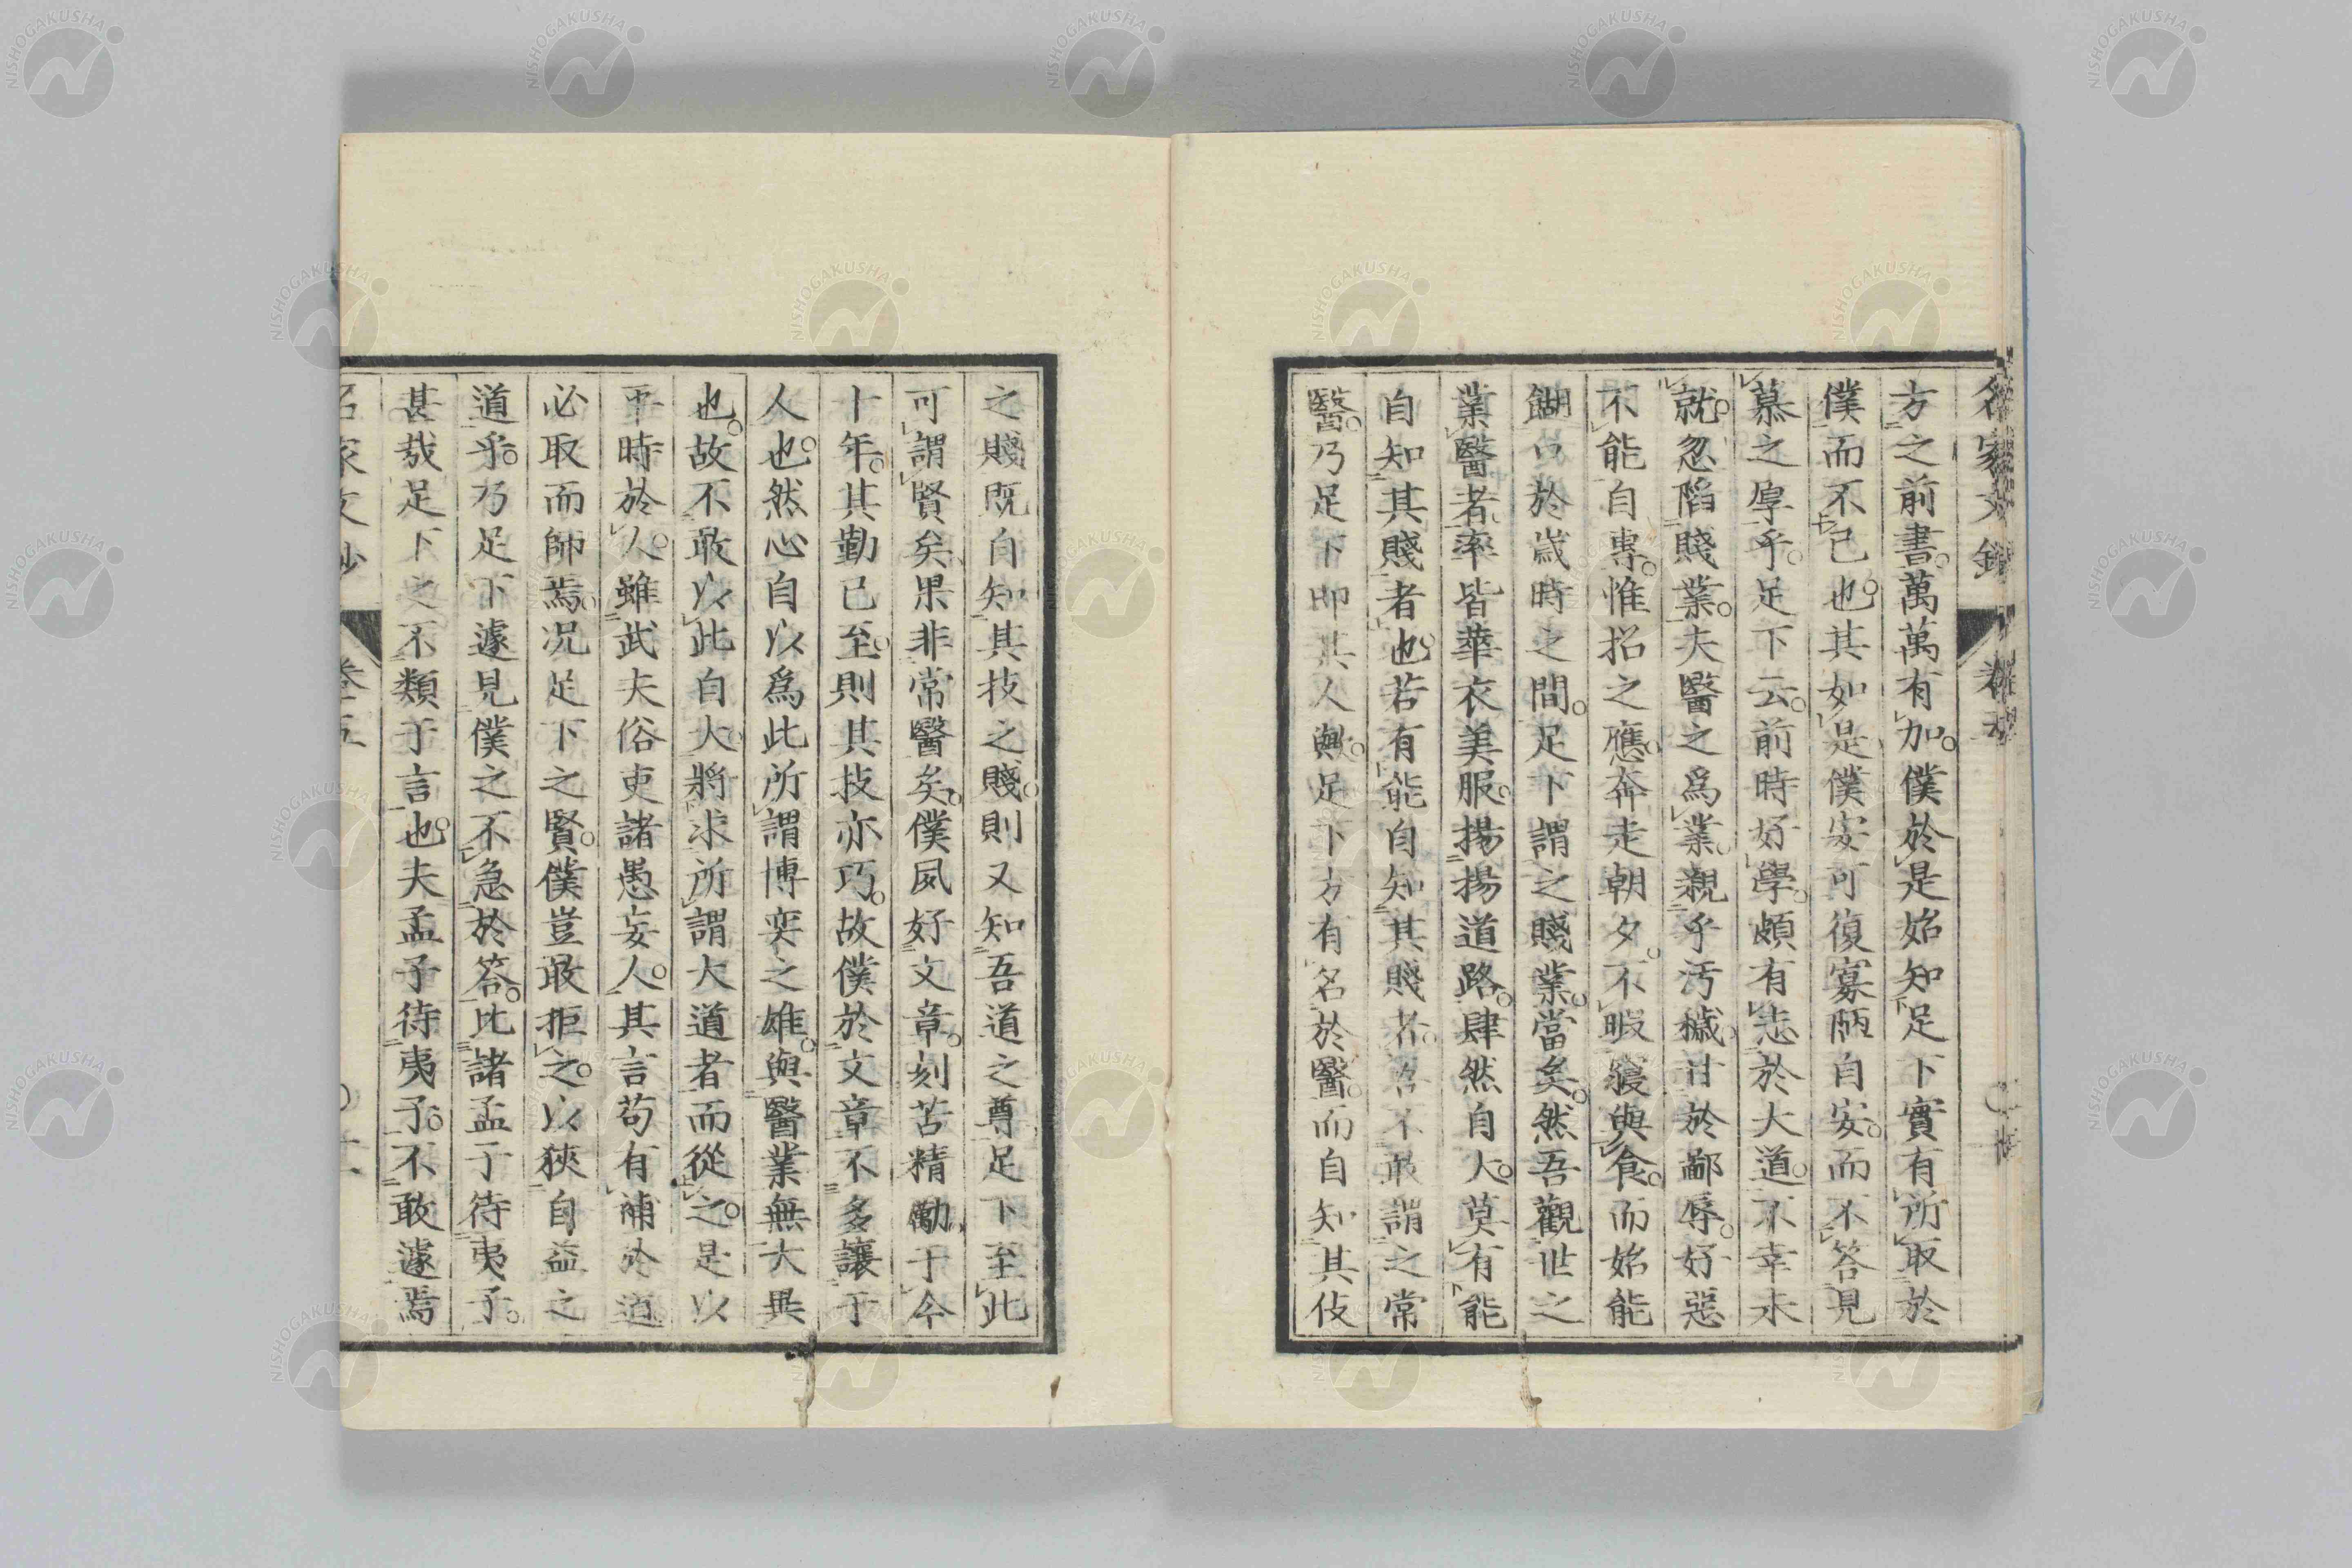 方之前書。萬萬有加。僕於是始知足下實有所取於
僕而不已也。其如是僕安可復寡陋自安。而不答見
慕之厚乎。足下云。前時好學。頗有志於大道。不幸未
就。忽陷賤業。夫醫之爲業。親乎汚穢。甘於鄙辱。好惡
不能自專。惟招之應。奔走朝夕。不暇寢與食。而始能
餬口於歲時之間。足下謂之賤業。當矣。然吾觀世之
業醫者。率皆華衣美服。揚揚道路。肆然自大。莫有能
自知其賤者也。若有能自知其賤者。不敢謂之常
醫。乃足下即其人與。足下方有名於醫。而自知其伎
之賤既自知其技之賤。則又知吾道之尊足下至此
可謂賢矣。果非常醫矣。僕夙好文章。刻苦精勵于今
十年。其勤已至。則其技亦巧。故僕於文章不多讓于
人也。然心自以爲此所謂博奕之雄。與醫業無大異
也。故不敢以此自大。將求所謂大道者而從之。是以
平時於人。雖武夫俗吏諸愚妄人。其言苟有補於道
必取而師焉。況足下之賢。僕豈敢拒之。以狹自益之
道乎。乃足下遽見僕之不急於答。比諸孟子待夷子。
甚哉足下之不類于言也。夫孟子待夷子。不敢遽焉
名家文抄
NISHOGAKUSHA